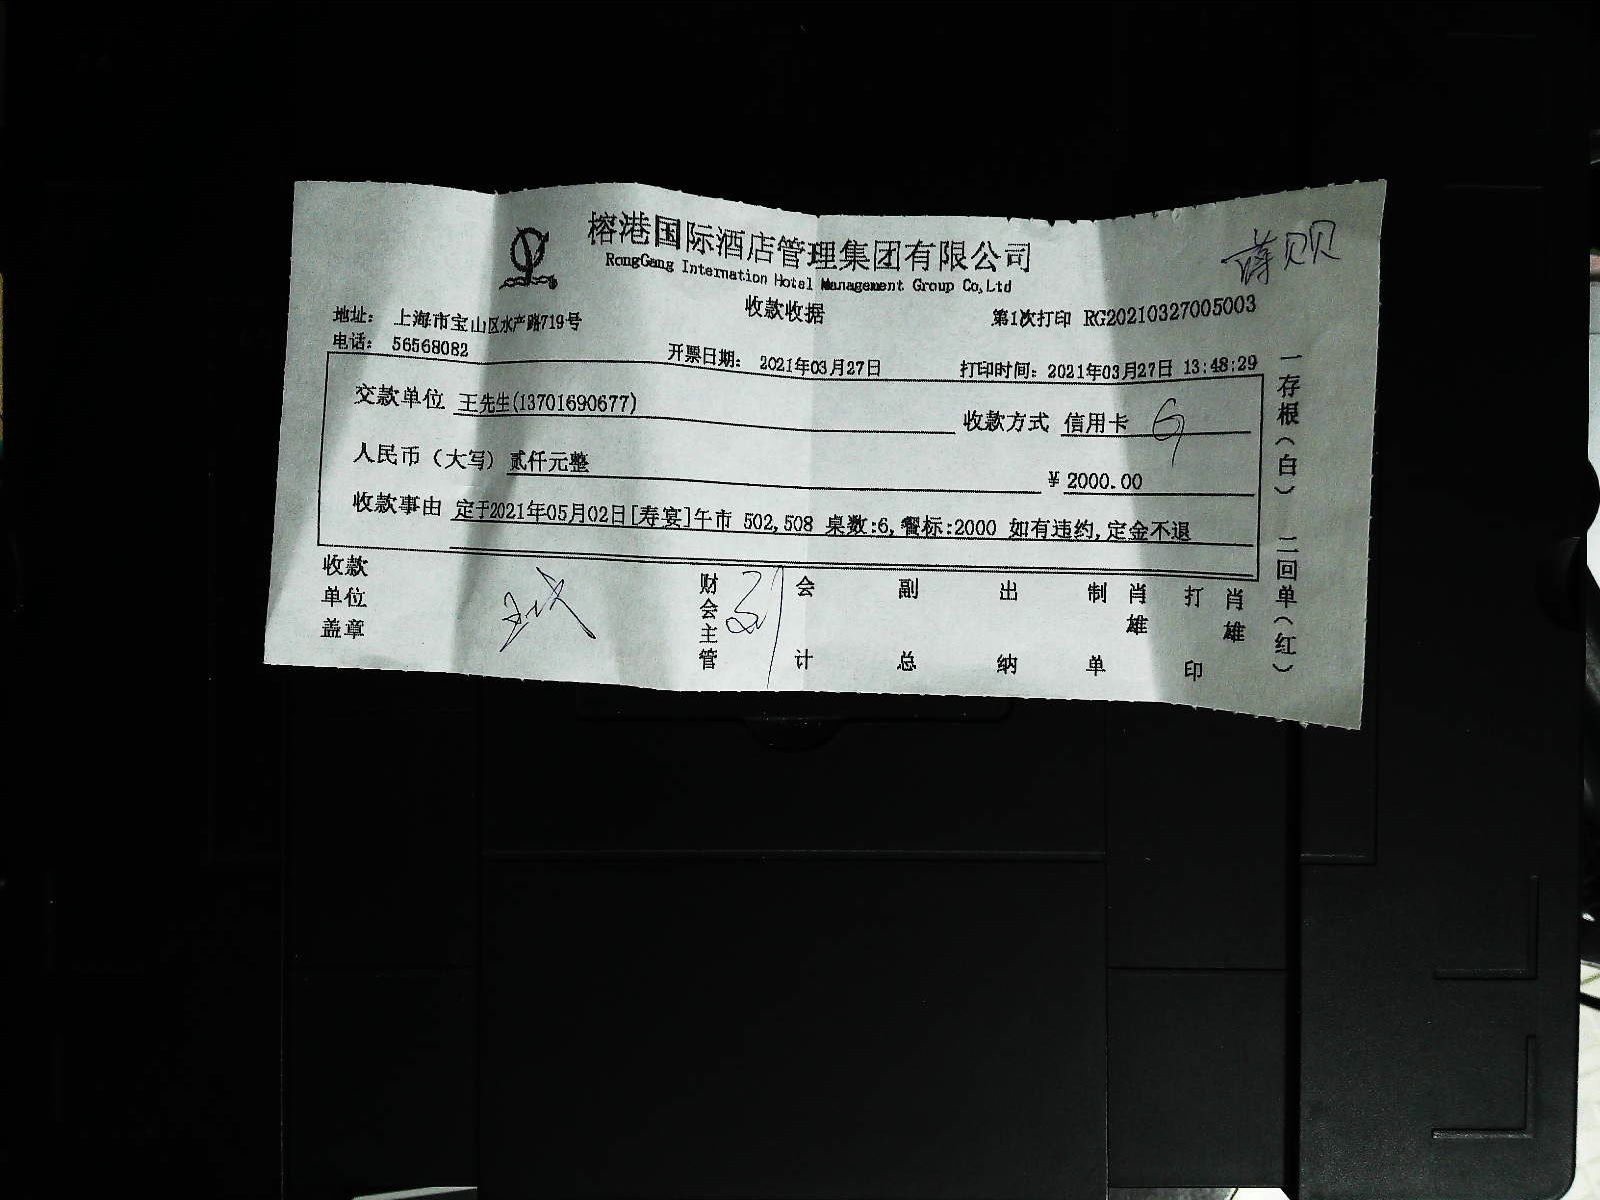 榕港国际酒店管理集团有限公司
RongGang Internation Hotel Management Group Co,Ltd
薛贝贝
收款收据
第1次打印 RG20210327005003
地址： 上海市宝山区水产路719号
电话： 56568082
开票日期： 2021年03月27日
打印时间：2021年03月27日 13:48:29
交款单位 王先生(13701690677)
收款方式 信用卡
人民币（大写）贰仟元整
¥ 2000.00
收款事由 定于2021年05月02日[寿宴]午市 502,508 桌数:6,餐标:2000 如有违约,定金不退
收款单位盖章
财会主管
会计
副总
出纳
制单 肖雄
打印 肖雄
一存根（白） 二回单（红）